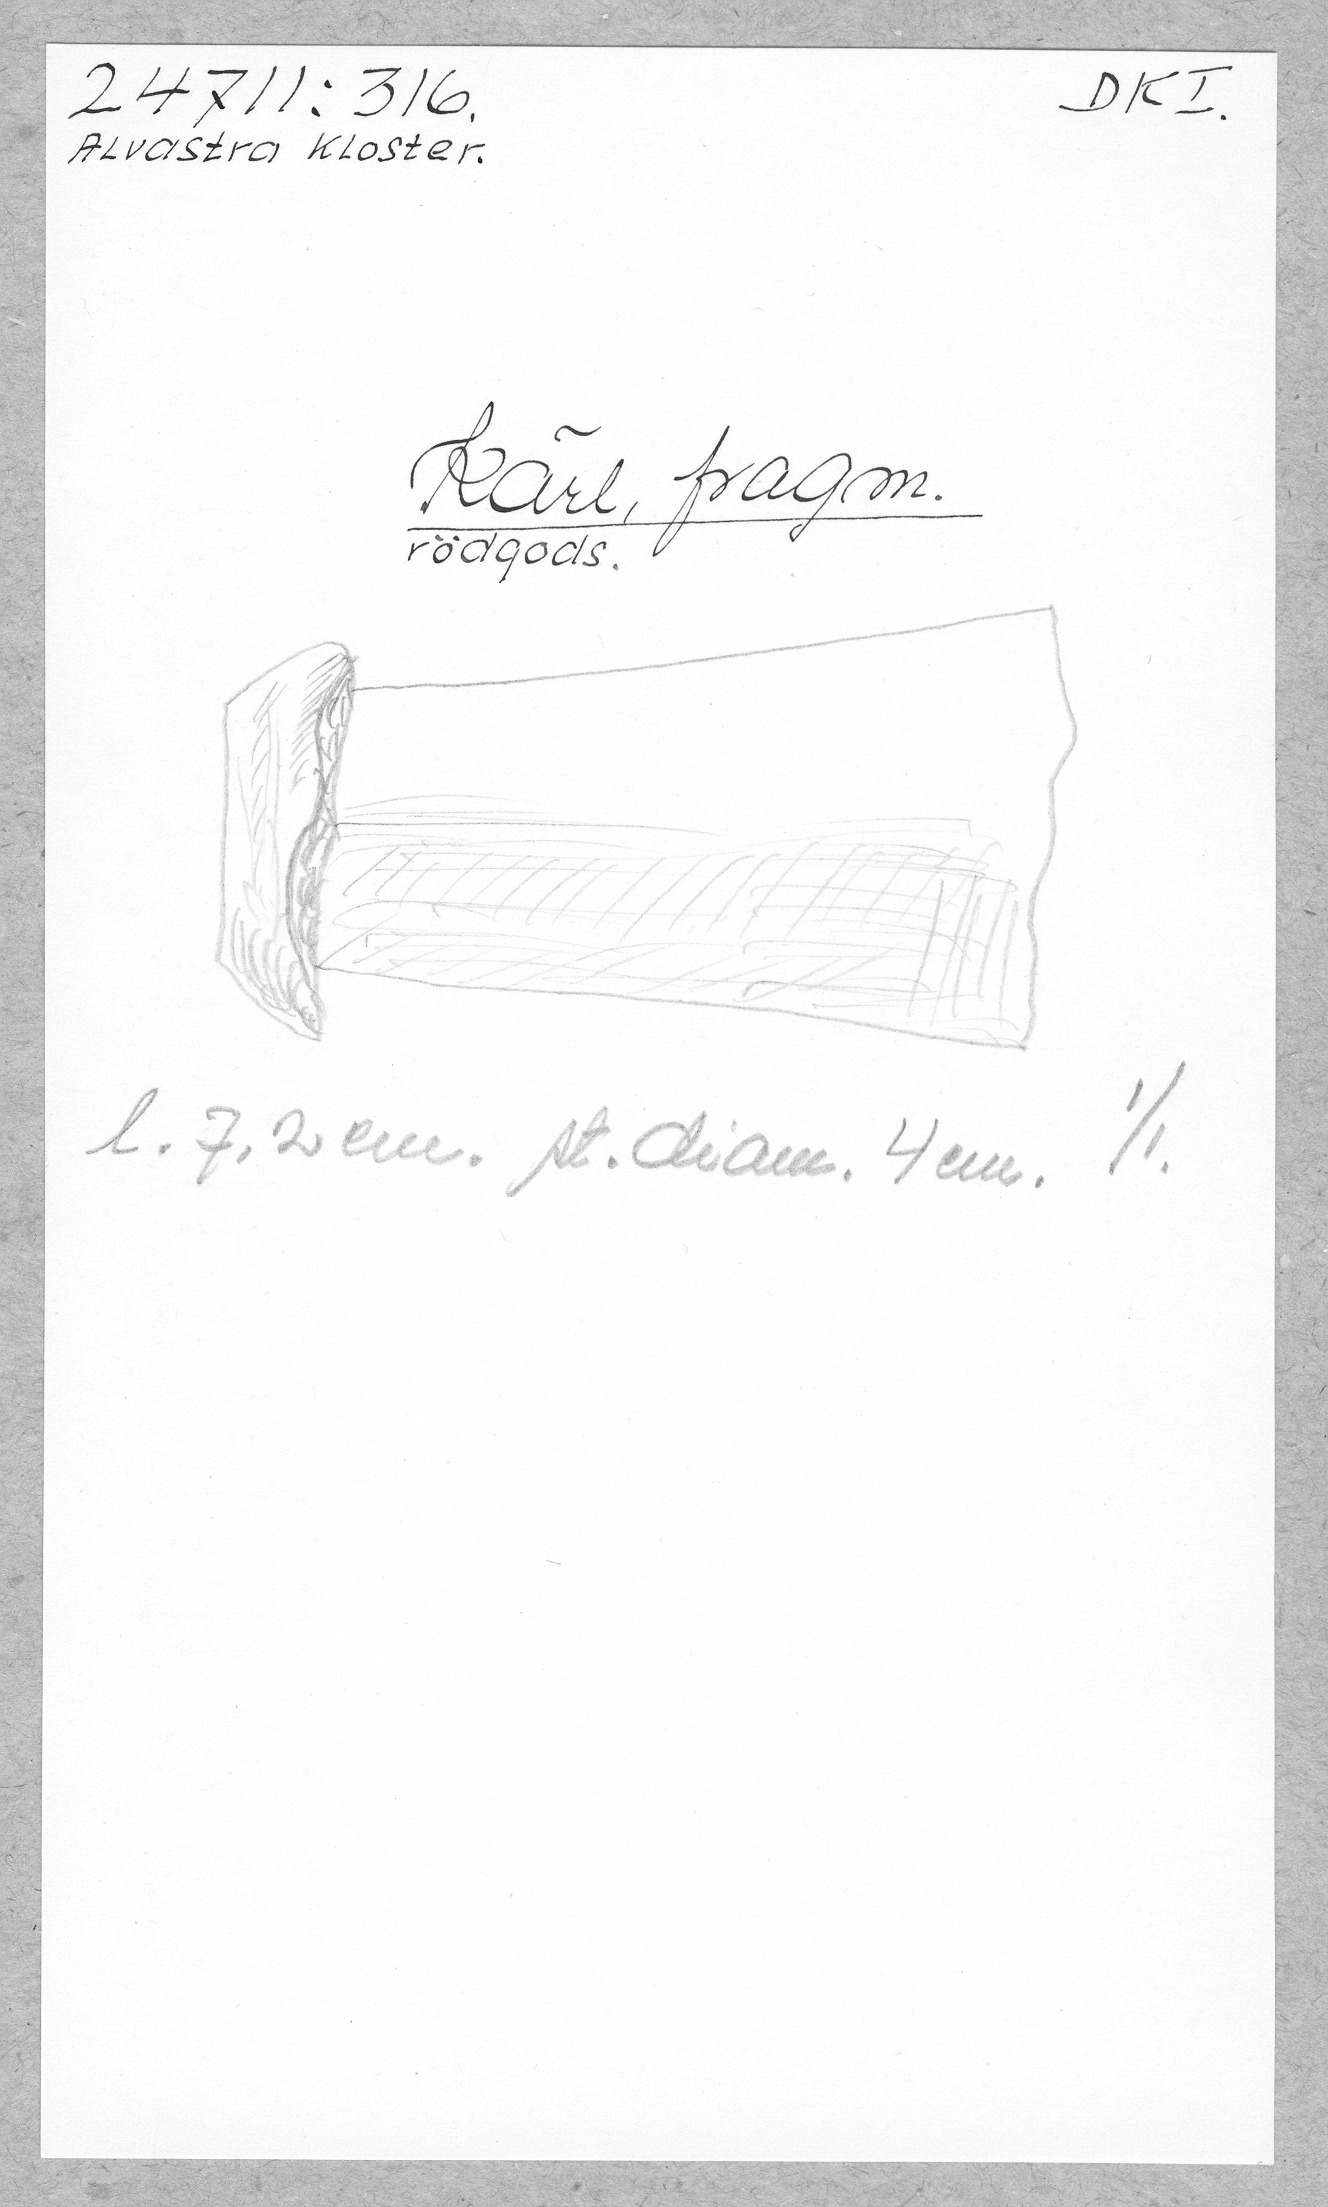 24711:316.
DKI.
Alvastra Kloster.
Kärl, fragm.
rödgods.
l. 7,2 cm. st. diam. 4 cm. 1/1.